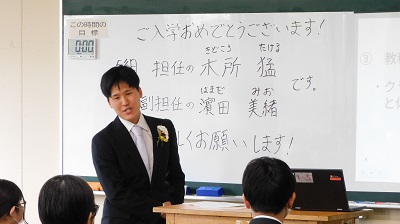 この時間の
目標
00:00
ご入学おめでとうございます！
きどころ たける
5組 担任の 木所 猛
です。
はまだ みお
副担任の 濵田 美緒
しくお願いします！
③ 教科
・ク
と